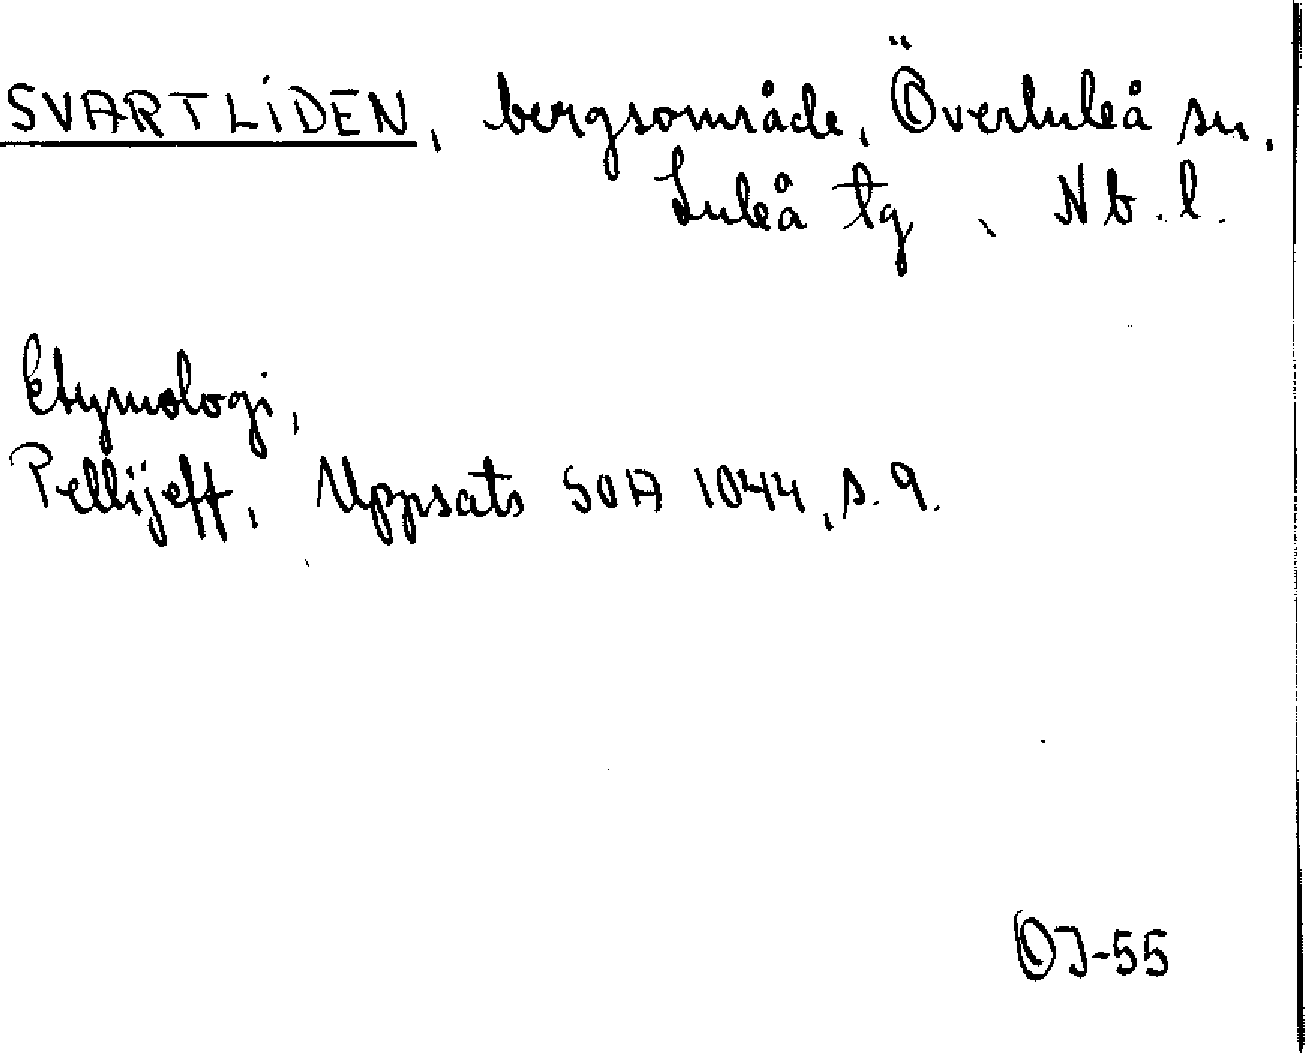 SVARTLIDEN, bergsområde, Överluleå sn,
Luleå tg, Nb. l.
Etymologi,
Pellijeff, Uppsats SOA 1044, s. 9.
OJ-55